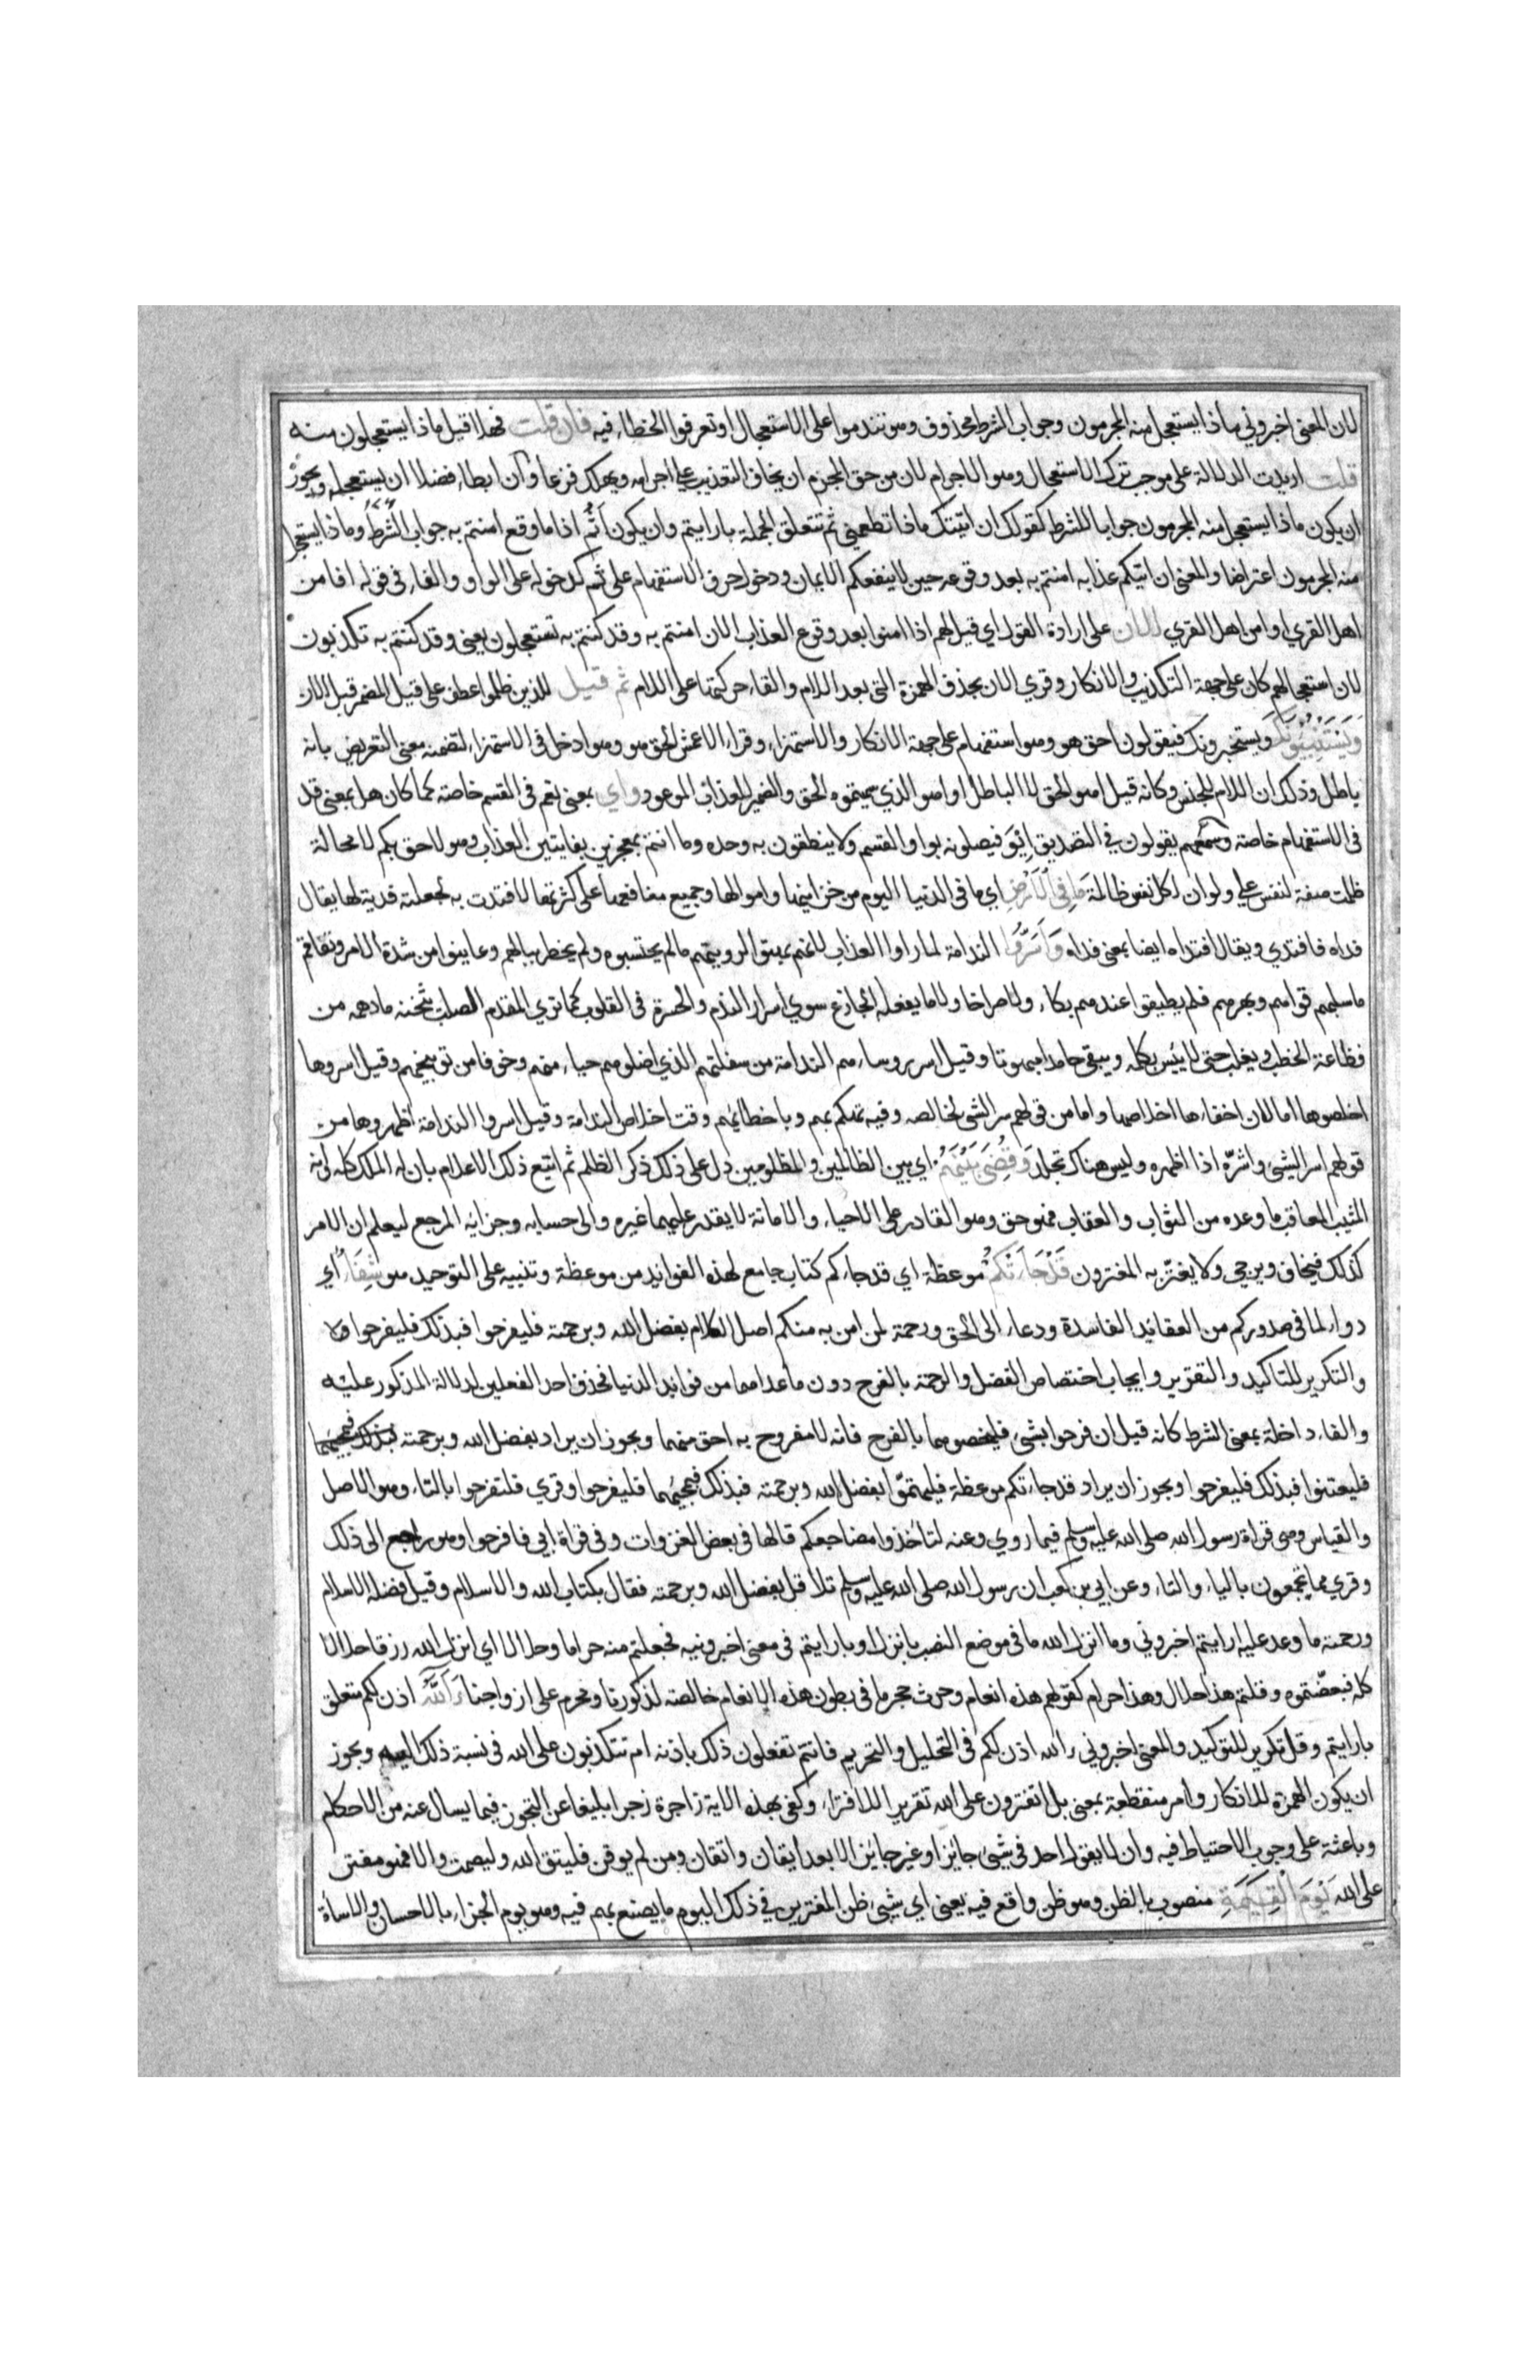 لان المعنى اخبروني ماذا يستعجل منه المجرمون وجواب الشرط محذوف وهو تندموا على الاستعجال او تعرفوا الخطاء فيه فان قلت فهلا قيل ماذا يستعجلون منه
قلت اريدت الدلالة على موجب ترك الاستعجال وهو الاجرام لان من حق المجرم ان يخاف التعذيب على اجرامه ويهلك فزعا وان ابطاء فضلا ان يستعجله ويجوز
ان يكون ماذا يستعجل منه المجرمون جوابا للشرط كقولك ان اتيتك ماذا تطعمني ثم تتعلق الجملة بارايتم وان يكون اثم اذا ما وقع امنتم به جواب الشرط وماذا يستعجل
منه المجرمون اعتراضا والمعنى ان اتيكم عذابه امنتم به بعد وقوعه حين لا ينفعكم الايمان ودخول حرف الاستفهام على ثم كدخوله على الواو والفاء في قوله افامن
اهل القري اوامن اهل القري الان على ارادة القول اي قيل لهم اذا امنوا بعد وقوع العذاب الان امنتم به وقد كنتم به تستعجلون يعني وقد كنتم به تكذبون
لان استعجالهم كان على جهة التكذيب والانكار وقري الان بحذف الهمزة التي بعد اللام والقاء حركتها على اللام ثم قيل للذين ظلموا عطف على قيل المضمر قبل الان
ويستنبئونك ويستخبرونك فيقولون احق هو وهو استفهام على جهة الانكار والاستهزاء وقراء الاعمش الحق هو وهو ادخل في الاستهزاء لتضمنه معنى التعريض بانه
باطل وذلك ان اللام للجنس وكانه قيل اهو الحق لا الباطل او اهو الذي سميتموه الحق والضمير للعذاب الموعود واي بمعنى نعم في القسم خاصة كما كان هل بمعنى قد
في الاستفهام خاصة وسمعتهم يقولون في التصديق ايو فيصلونه بواو القسم ولا ينطقون به وحده وما انتم بمعجزين بفايتين العذاب وهو لاحق بكم لا محالة
ظلمت صفة لنفس على ولو ان لكل نفس ظالمة ما في الارض اي ما في الدنيا اليوم من خزاينها واموالها وجميع منافعها على كثرتها لافتدت به لجعلته فدية لها يقال
فداه فافتدي ويقال افتداه ايضا بمعنى فداه واسروا الندامة لما راوا العذاب لانهم بهتوا لرويتهم ما لم يحتسبوه ولم يخطر ببالهم وعاينوا من شدة الامر وتفاقمه
ما سلبهم قواهم وبهرهم فلم يطيقوا عندهم بكاء ولا صراخا ولا ما يفعله الجازع سوي اسرار الندم والحسرة في القلوب كما تري المقدم للصلب يثخنه ما دهمه من
فظاعة الخطب ويغلب حتى لا ينبس بكلمة ويبقي جامدا مبهوتا وقيل اسر روساءهم الندامة من سفلتهم الذي اضلوهم حياء منهم وخوفا من توبيخهم وقيل اسروها
اخلصوها اما لان اخفاءها اخلاصها واما من قولهم سر الشي لخالصه وفيه تهكم بهم وباخطائهم وقت اخلاص الندامة وقيل اسروا الندامة اظهروها من
قولهم اسر الشي واشره اذا اظهره وليس هناك تجلد وقضي بينهم اي بين الظالمين والمظلومين دل على ذلك ذكر الظلم ثم اتبع ذلك الاعلام بان له الملك كله وانه
المثيب المعاقب وما وعده من الثواب والعقاب فهو حق وهو القادر على الاحياء والاماتة لا يقدر عليهما غيره والى حسابه وجزايه المرجع ليعلم ان الامر
كذلك فيخاف ويرجي ولا يغتر به المغترون قد جاءتكم موعظة اي قد جاءكم كتاب جامع لهذه الفوايد من موعظة وتنبيه على التوحيد هو شفاء اي
دواء لما في صدوركم من العقايد الفاسدة ودعاء الى الحق ورحمة لمن امن به منكم اصل الكلام بفضل الله وبرحمته فليفرحوا فبذلك فليفرحوا
والتكرير للتاكيد والتقرير وايجاب اختصاص الفضل والرحمة بالفرح دون ما عداهما من فوايد الدنيا فحذف احد الفعلين لدلالة المذكور عليه
والفاء داخلة بمعنى الشرط كانه قيل ان فرحوا بشي فليخصوهما بالفرح فانه لا مفروح به احق منهما ويجوز ان يراد بفضل الله وبرحمته
فليعتنوا فبذلك فليفرحوا ويجوز ان يراد قد جاءتكم موعظة بفضل الله وبرحمته فبذلك فبمجيئهما فليفرحوا وقري فلتفرحوا بالتاء وهو الاصل
والقياس وهي قراة رسول الله صلى الله عليه وسلم فيما روي وعنه لتاخذوا مضاجعكم قالها في بعض الغزوات وفي قراة ابي فافرحوا وهو راجع الى ذلك
وقري مما يجمعون بالياء والتاء وعن ابي بن كعب ان رسول الله صلى الله عليه وسلم تلا قل بفضل الله وبرحمته فقال بكتاب الله والاسلام وقيل فضله الاسلام
ورحمته ما وعد عليه ارايتم اخبروني وما انزل الله ما في موضع النصب بانزل او بارايتم في معنى اخبرونيه فجعلتم منه حراما وحلالا اي انزل الله رزقا حلالا
كله فبعضتموه وقلتم هذا حلال وهذا حرام كقولهم هذه انعام وحرث حجر ما في بطون هذه الانعام خالصة لذكورنا ومحرم على ازواجنا ءالله اذن لكم متعلق
بارايتم وقل تكرير للتوكيد والمعنى اخبروني ءالله اذن لكم في التحليل والتحريم فانتم تفعلون ذلك باذنه ام تتكذبون على الله في نسبة ذلك اليه ويجوز
ان يكون الهمزة للانكار وام منقطعة بمعنى بل اتفترون على الله تقرير اللافتراء وكفى بهذه الاية زاجرة زجرا بليغا عن التجوز فيما يسال عنه من الاحكام
وباعثة على وجوب الاحتياط فيه وان لا يقول احد في شي جايز او غير جايز الا بعد ايقان واتقان ومن لم يوقن فليتق الله وليصمت والا فهو مفتر
على الله يوم القيمة منصوب بالظن وهو ظن واقع فيه يعني اي شي ظن المفترين في ذلك اليوم ما يصنع بهم فيه وهو يوم الجزاء بالاحسان والاساة